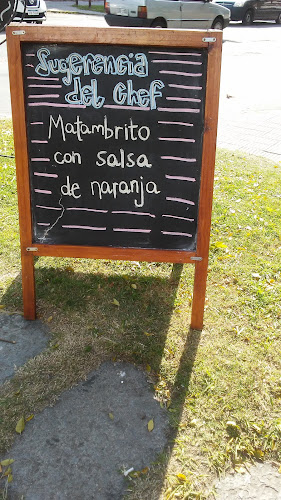 Sugerencia
del chef
Matambrito
con salsa
de naranja